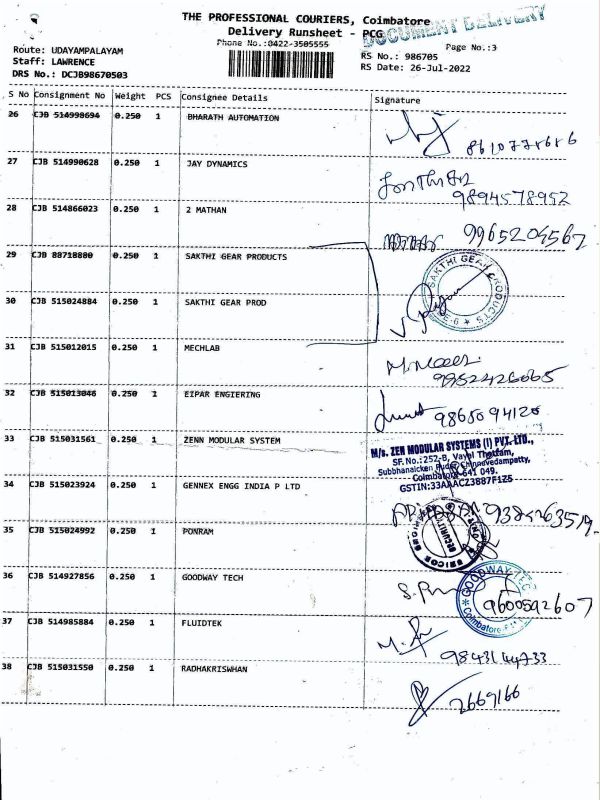 THE PROFESSIONAL COURIERS, Coimbatore
DOCUMENT DELIVERY
Delivery Runsheet - PCG
Phone No.:0422-3505555
Page No.:3
Route: UDAYAMPALAYAM
RS No.: 986705
Staff: LAWRENCE
RS Date: 26-Jul-2022
DRS No.: DCJB98670503
S No Consignment No Weight PCS Consignee Details Signature
26 CJB 514990694 0.250 1 BHARATH AUTOMATION
27 CJB 514990628 0.250 1 JAY DYNAMICS
9894578952
28 CJB 514866023 0.250 1 2 MATHAN
9965204567
29 CJB 88718880 0.250 1 SAKTHI GEAR PRODUCTS
SAKTHI GEAR PRODUCTS
30 CJB 515024884 0.250 1 SAKTHI GEAR PROD
31 CJB 515012015 0.250 1 MECHLAB
9952426065
32 CJB 515013046 0.250 1 EIPAR ENGIERING
9865094120
33 CJB 515031561 0.250 1 ZENN MODULAR SYSTEM
M/s. ZEN MODULAR SYSTEMS (I) PVT. LTD.,
SF. No.:252-B, Vayal Thottam,
Subbhanaicken Pudur, Chinnavedampatty,
Coimbatore-641 049.
GSTIN:33AAACZ3887F1Z5
34 CJB 515023924 0.250 1 GENNEX ENGG INDIA P LTD
35 CJB 515024992 0.250 1 PONRAM
SECURITY
36 CJB 514927856 0.250 1 GOODWAY TECH
GOODWAY TEC
9600592607
Coimbatore
37 CJB 514985884 0.250 1 FLUIDTEK
9843144733
38 CJB 515031550 0.250 1 RADHAKRISWHAN
2669166